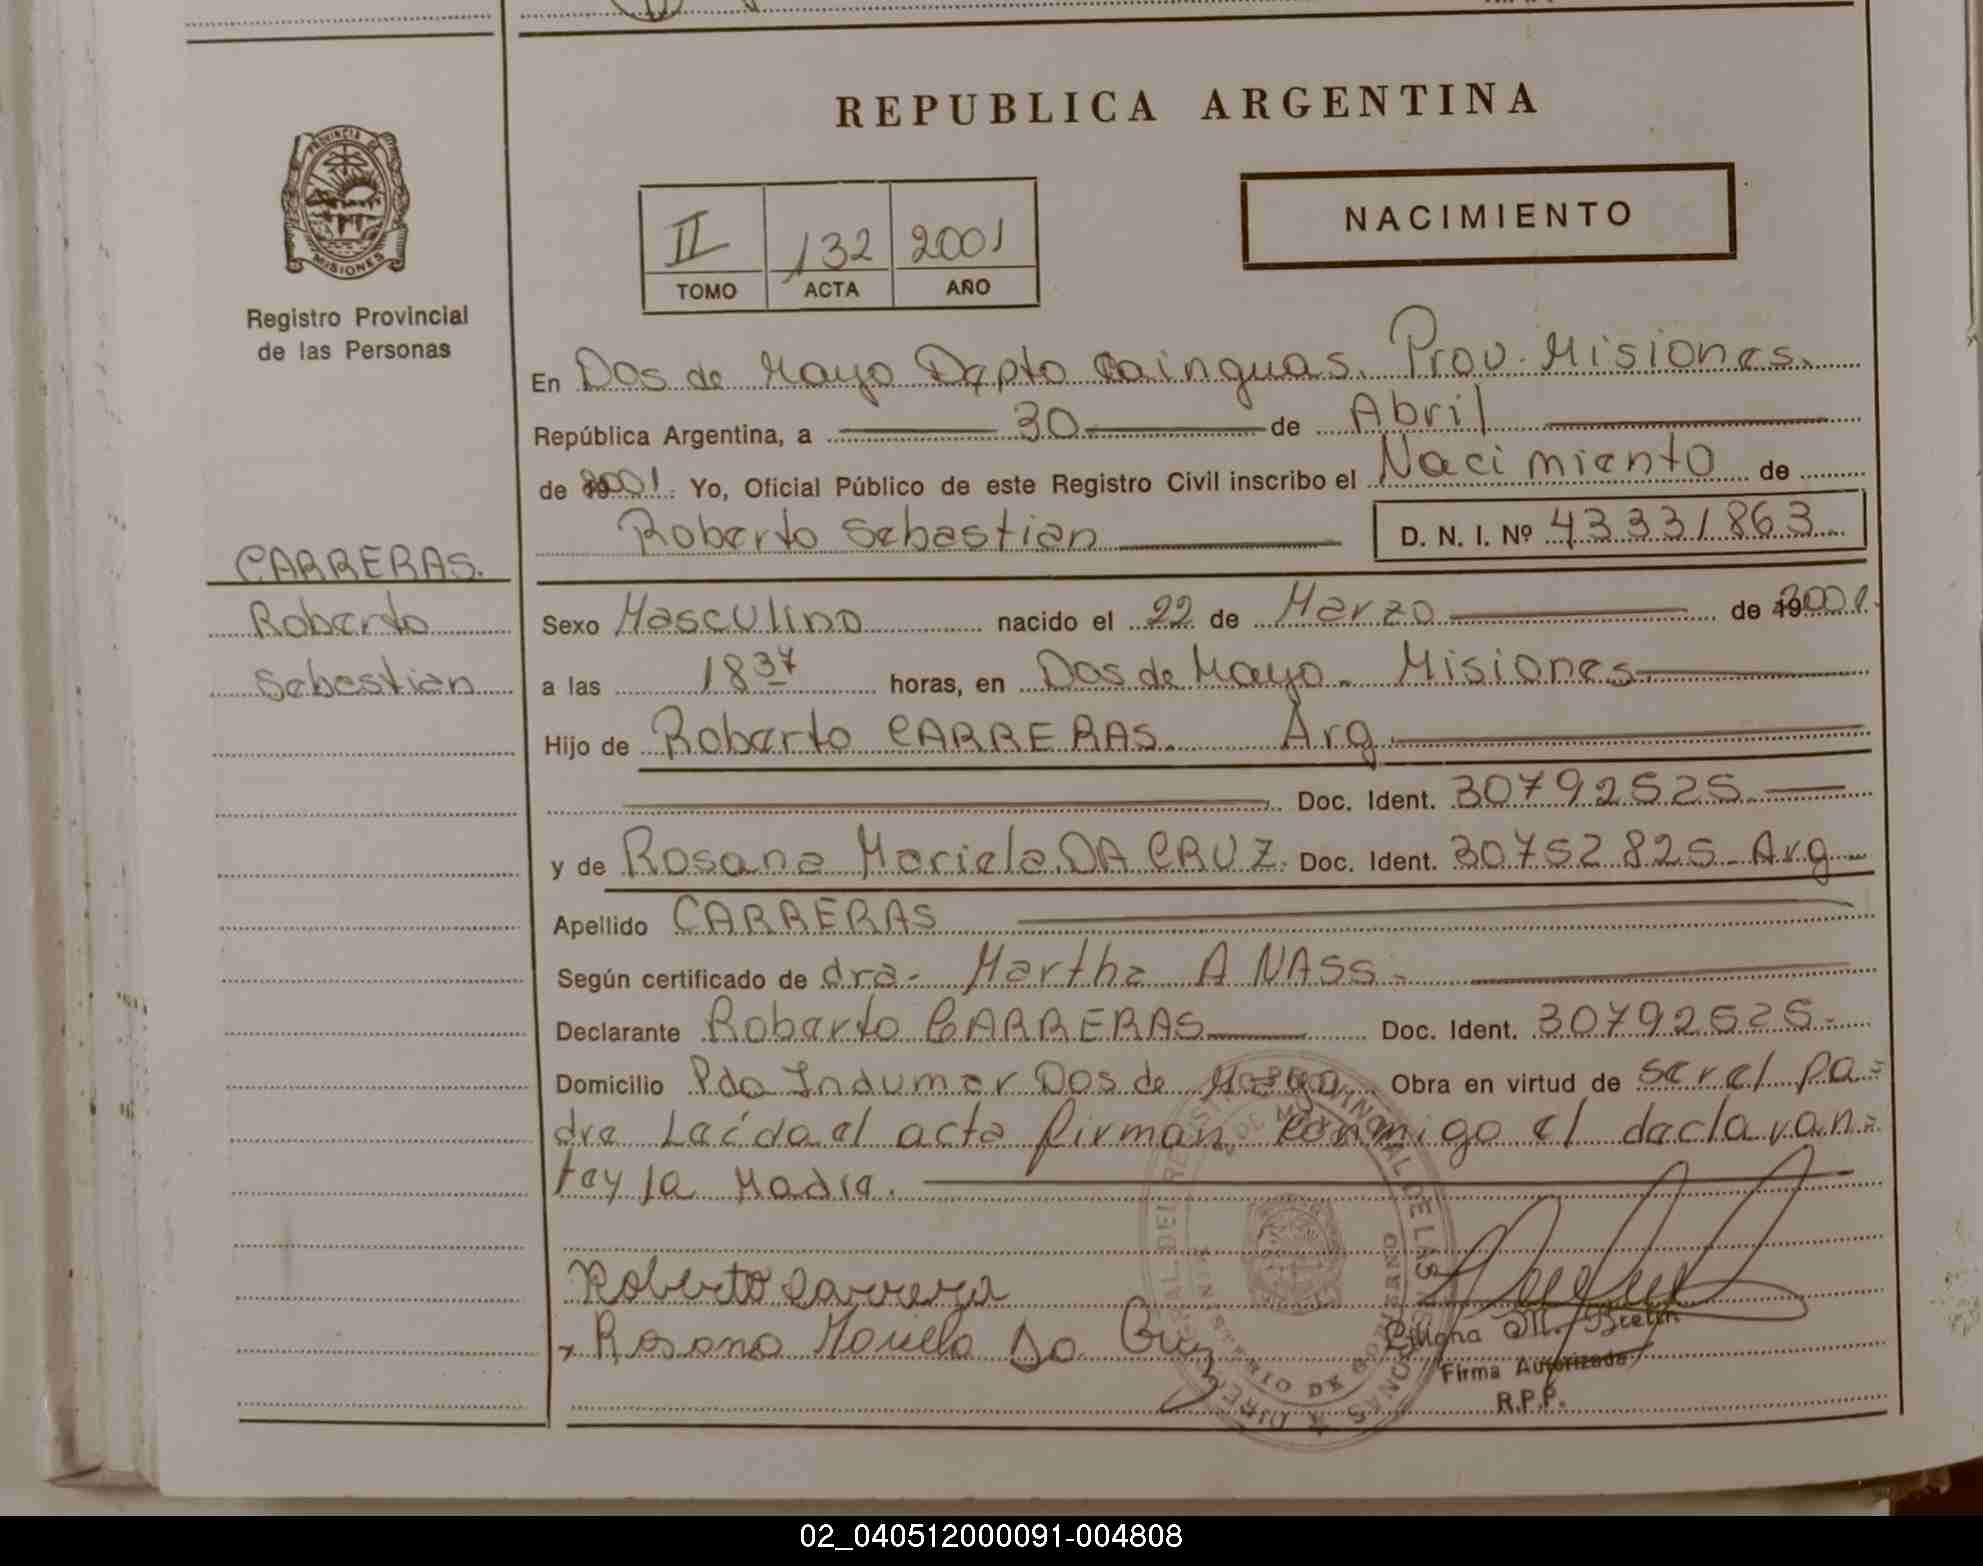 REPUBLICA ARGENTINA
PROVINCIA DE
MISIONES
Registro Provincial
de las Personas
II 132 2001
TOMO ACTA AÑO
NACIMIENTO
En Dos de Mayo Depto Cainguas. Prov. Misiones.
República Argentina, a 30 de Abril
de 2001. Yo, Oficial Público de este Registro Civil inscribo el Nacimiento de
Roberto Sebastian D. N. I. Nº 43331863
CARRERAS.
Roberto
Sebastian
Sexo Masculino nacido el 22 de Marzo de 2001.
a las 18 37 horas, en Dos de Mayo. Misiones
Hijo de Roberto CARRERAS. Arg.
Doc. Ident. 30792525
y de Rosana Mariela DA CRUZ. Doc. Ident. 30752825 Arg
Apellido CARRERAS
Según certificado de dra. Martha A NASS.
Declarante Roberto CARRERAS Doc. Ident. 30792525.
Domicilio Pdo Indumar Dos de Mayo Obra en virtud de ser el pa=
dre Leída el acta firman conmigo el declaran=
te y la Madre.
Roberto Carrera
Rosana Mariela Da Cruz
M.
Firma Autorizada
R.P.P.
02_040512000091-004808